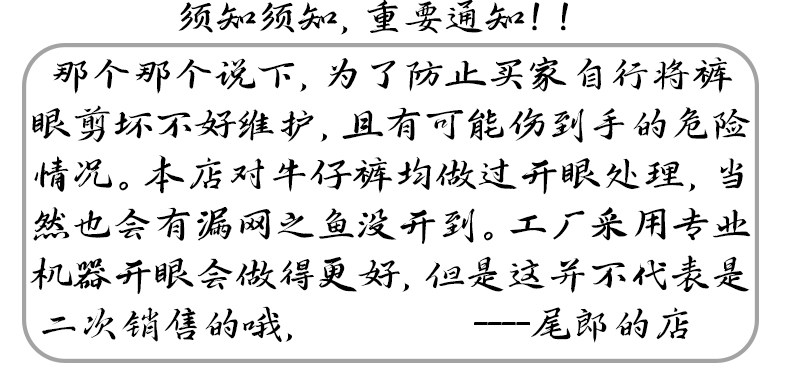 须知须知，重要通知！！
那个那个说下，为了防止买家自行将裤
眼剪坏不好维护，且有可能伤到手的危险
情况。本店对牛仔裤均做过开眼处理，当
然也会有漏网之鱼没开到。工厂采用专业
机器开眼会做得更好，但是这并不代表是
二次销售的哦， ----尾郎的店